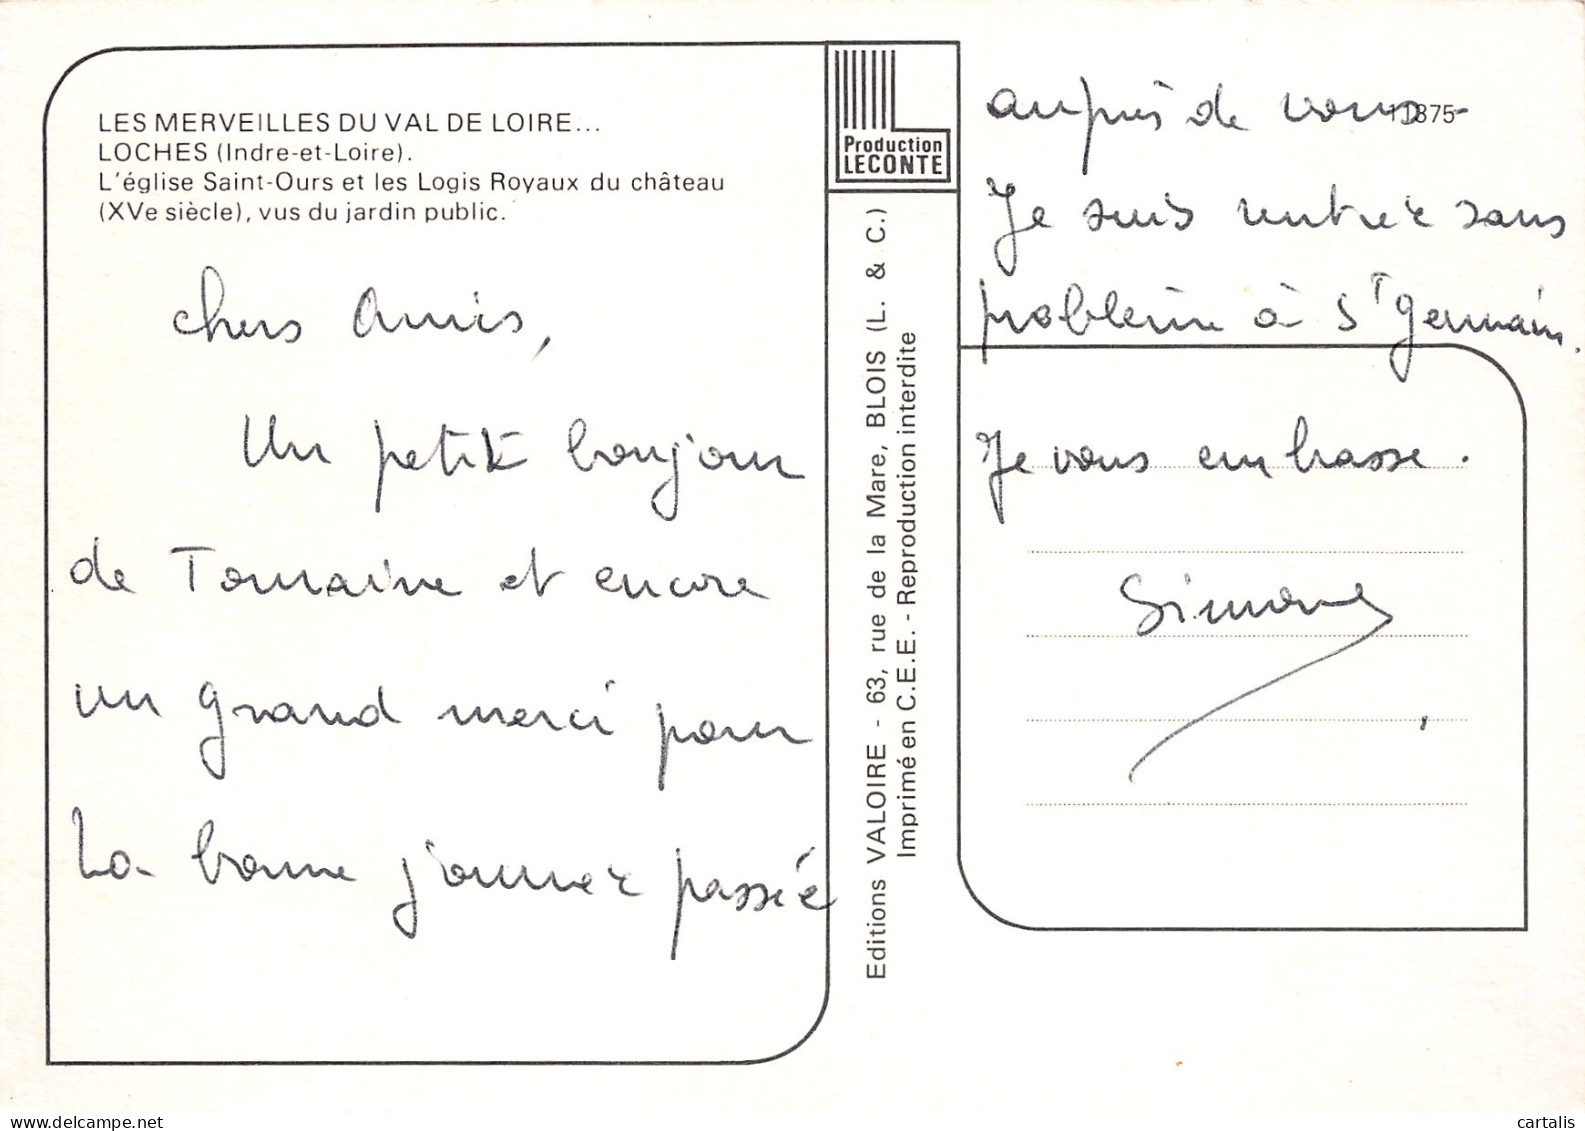 LES MERVEILLES DU VAL DE LOIRE...
LOCHES (Indre-et-Loire).
L'église Saint-Ours et les Logis Royaux du château
(XVe siècle), vus du jardin public.
chers Amis,
Un petit bonjour
de Touraine et encore
un grand merci pour
la bonne journée passée
Production
LECONTE
Editions VALOIRE - 63, rue de la Mare, BLOIS (L. & C.)
Imprimé en C.E.E. - Reproduction interdite
auprès de vous
Je suis rentrée sans
problème à St Germain.
Je vous embrasse.
Simone
delcampe.net
cartalis